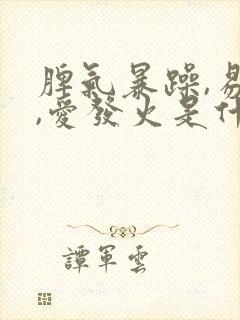 脾氣暴躁,易
,愛發火是什
譚軍雲